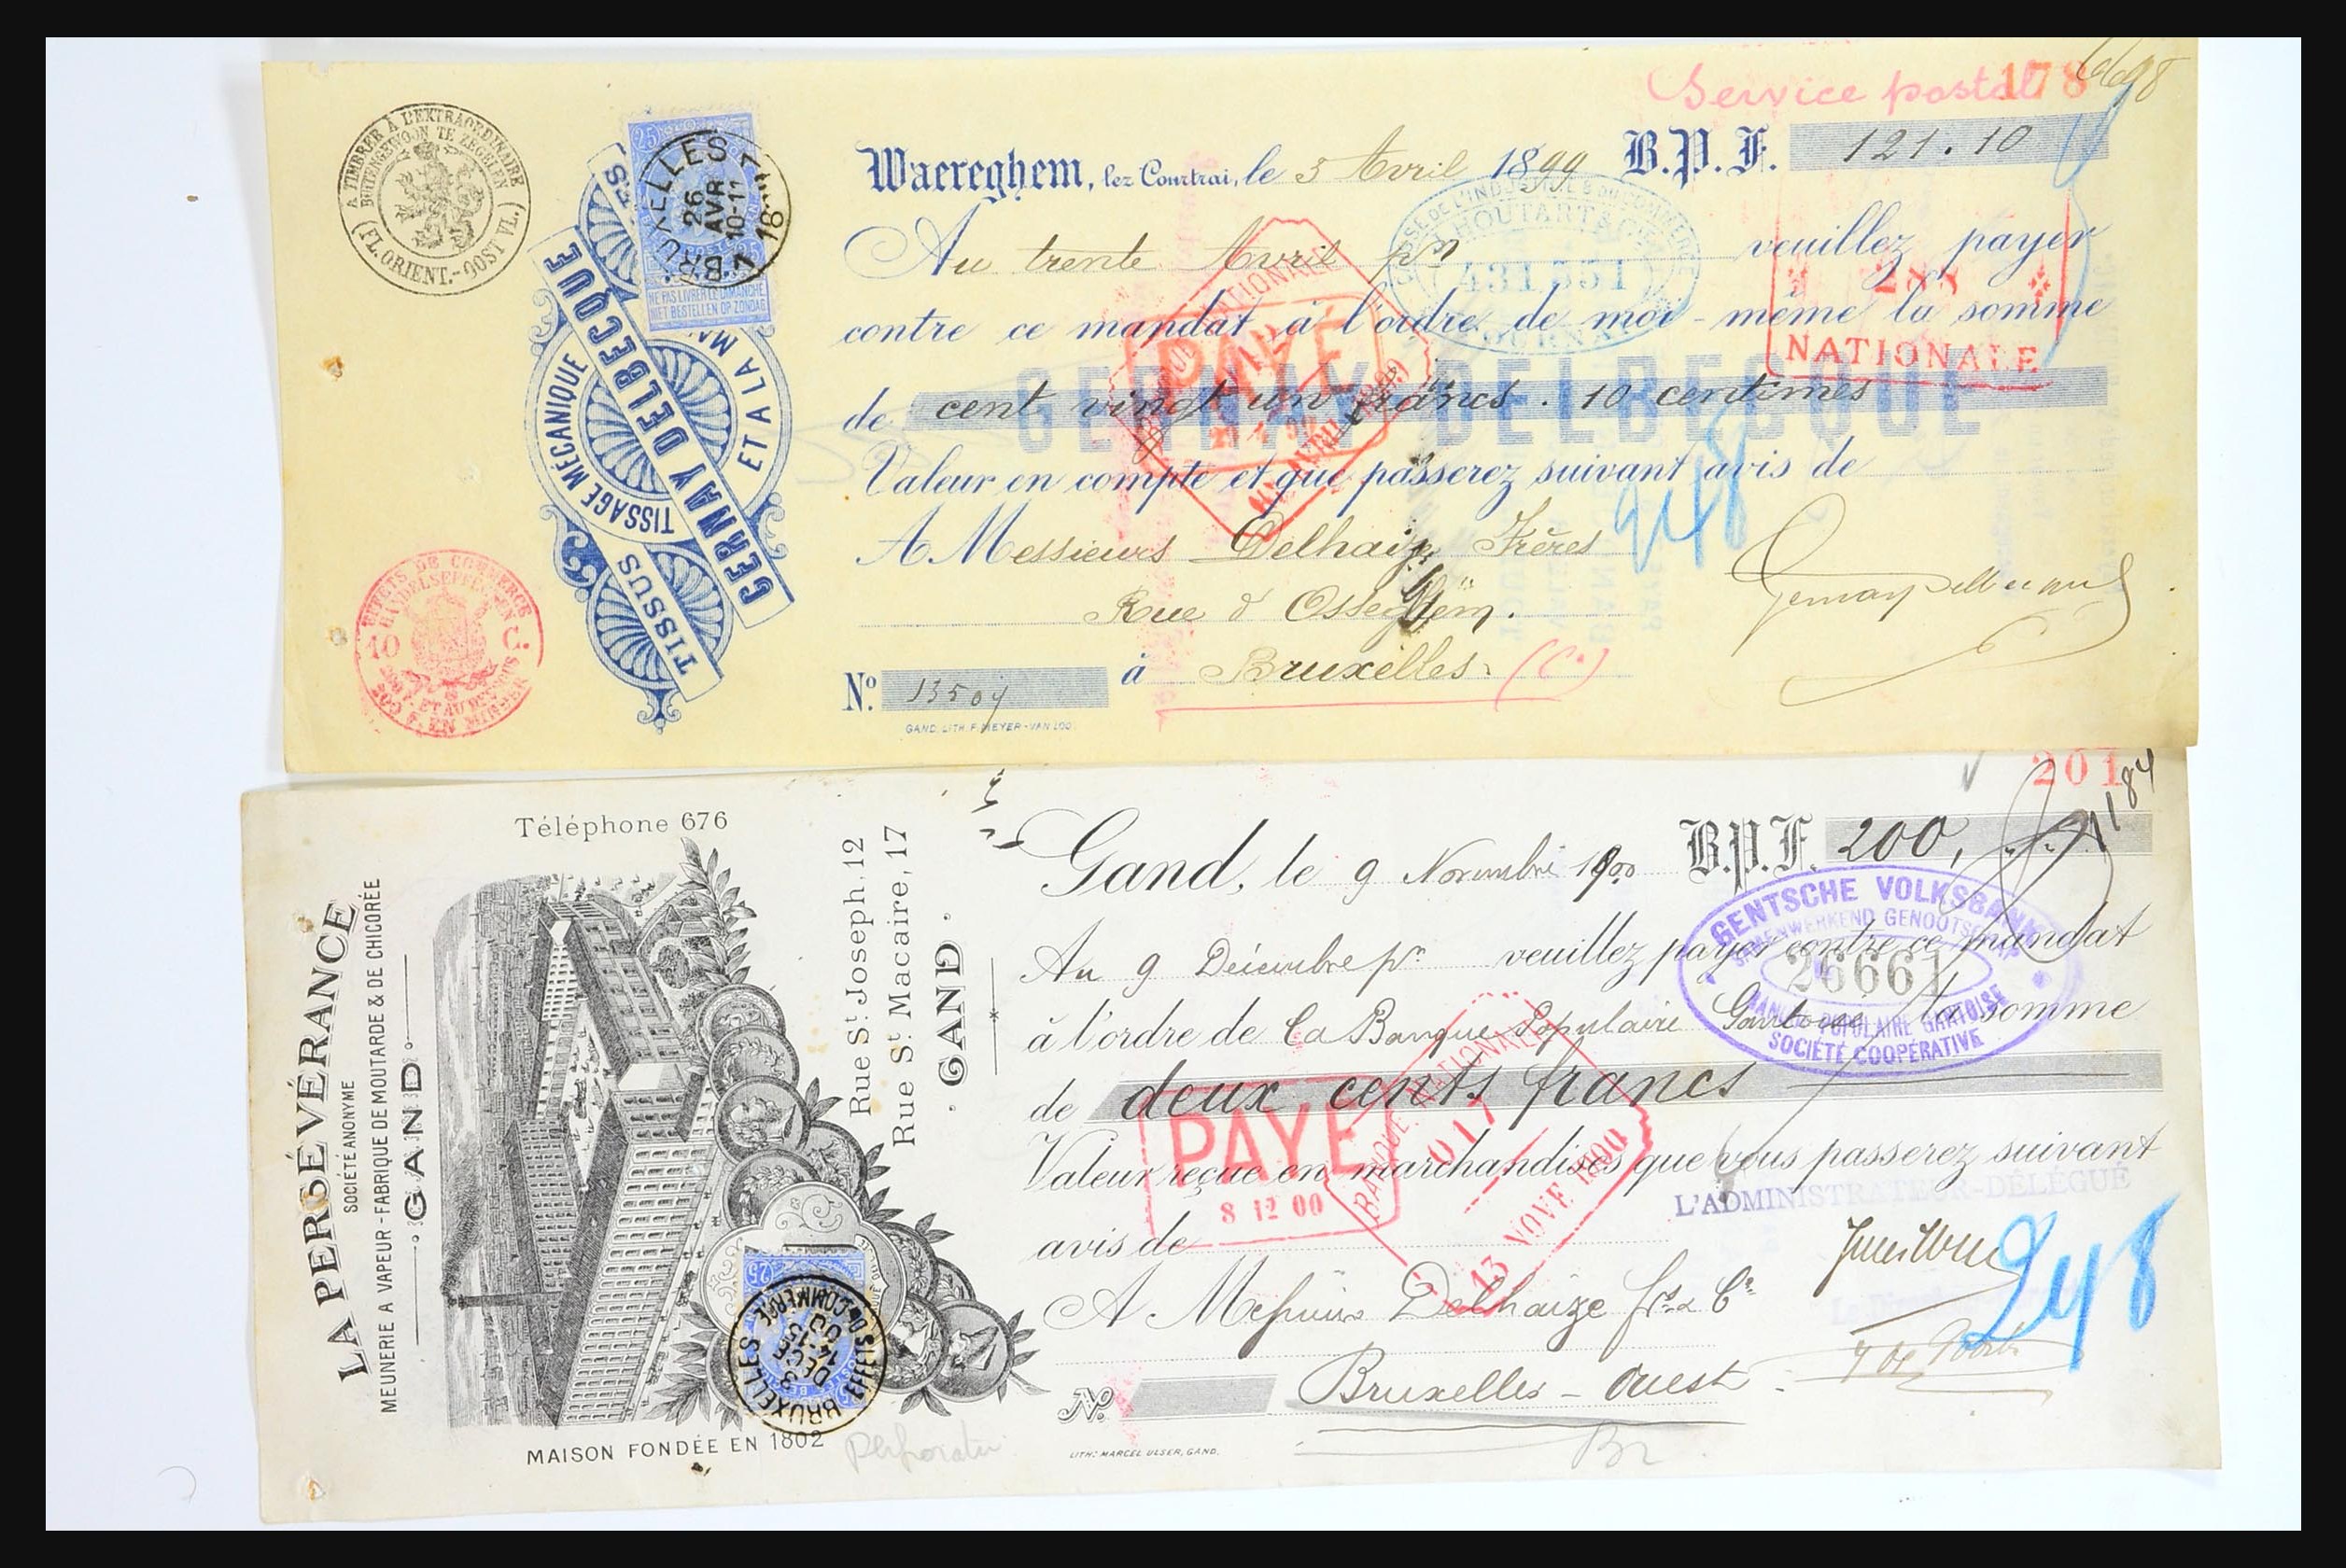 Service postal 178
6698
A TIMBRER À L'EXTRAORDINAIRE
BUITENGEWOON TE ZEGELEN
(FL. ORIENT.-OOST VL.)
25
BRUXELLES
26
AVR
10-11
18
NE PAS LIVRER LE DIMANCHE
NIET BESTELLEN OP ZONDAG
TISSAGE MÉCANIQUE
ET A LA MA
GERNAY DELBECQUE
TISSUS
EFFETS DE COMMERCE
HANDELSEFFECTEN
10 C.
Waereghem, lez Courtrai, le 3 Avril 1899 B.P.F. 121.10
Au trente Avril pn veuillez payer
contre ce mandat à l'ordre de moi-même la somme
de cent vingt un francs. 10 centimes
Valeur en compte et que passerez suivant avis de
A Messieurs Delhaize Frères
Rue d'Osseghem.
à Bruxelles. (C.)
No. 13507
GAND. LITH. F. MEYER-VAN LOO.
CAISSE DE L'INDUSTRIE & DU COMMERCE
HOUTART &
431551
TOURNAI
NATIONALE
PAYE
288
NATIONALE
GERNAY DELBECQUE
248
201
1184
Téléphone 676
LA PERSÉVÉRANCE
SOCIÉTÉ ANONYME
MEUNERIE A VAPEUR - FABRIQUE DE MOUTARDE & DE CHICORÉE
GAND
Rue St. Joseph, 12
Rue St. Macaire, 17
GAND
MAISON FONDÉE EN 1802
25
BRUXELLES
3
DECE
14-15
00
EFFETS DE COMMERCE
Gand, le 9 Novembre 1900 B.P.F. 200,
Au 9 Décembre pn veuillez payer contre ce mandat
à l'ordre de la Banque Populaire Gantoise la somme
de deux cents francs
Valeur reçue en marchandises que vous passerez suivant
avis de
A Messieurs Delhaize frs & Ce
Bruxelles - Ouest
No.
LITH: MARCEL ULSER, GAND.
GENTSCHE VOLKSBANK
SAMENWERKEND GENOOTSCHAP
26661
BANQUE POPULAIRE GANTOISE
SOCIÉTÉ COOPÉRATIVE
PAYE
8 12 00
BANQUE NATIONALE
017
13 NOVE 1900
L'ADMINISTRATEUR-DÉLÉGUÉ
248
Br